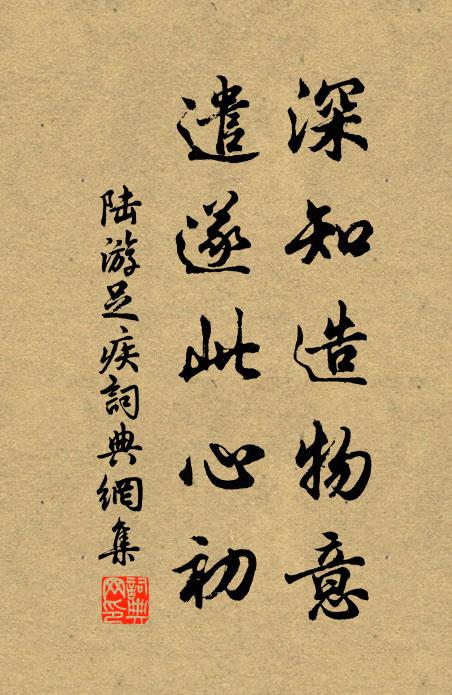 深知造物意
遣遂此心初
陆游足疾詞典網集
詞典网印